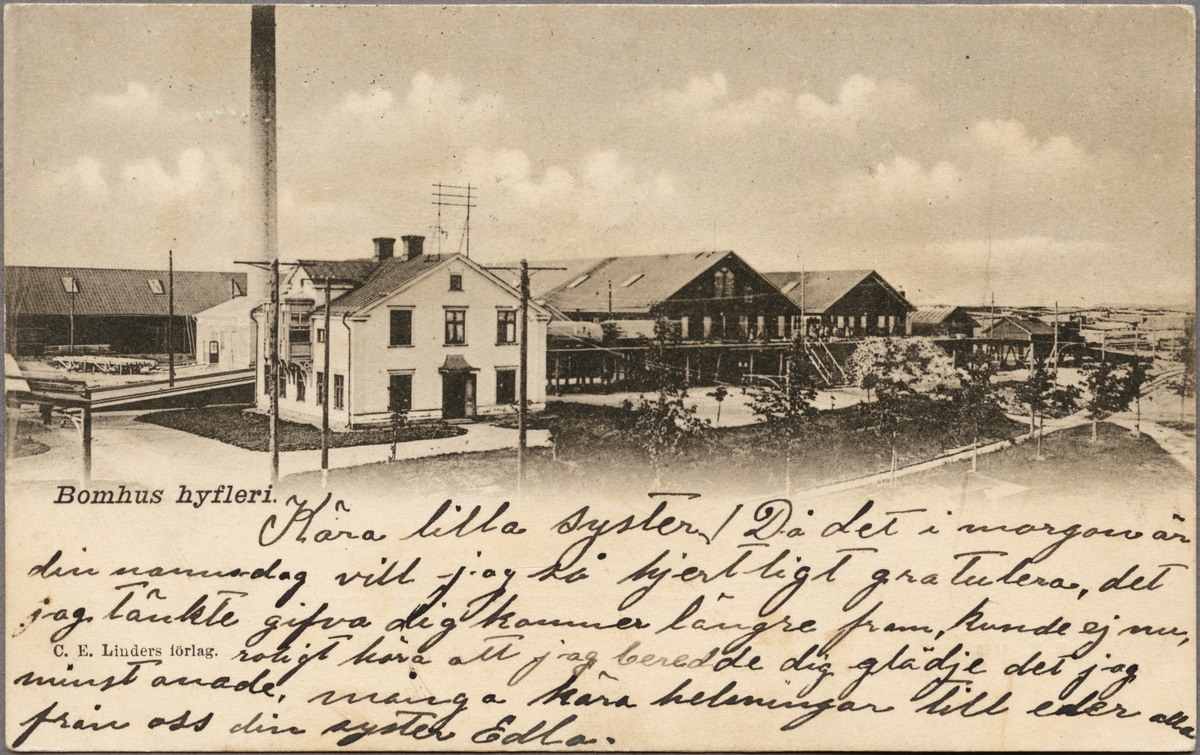 Bomhus hyfleri.
Kära lilla syster! Då det i morgon är
din namnsdag vill jag så hjertligt gratulera, det
jag tänkte gifva dig kommer längre fram, kunde ej nu,
C. E. Linders förlag.
roligt höra att jag beredde dig glädje det jag
minst anade, många kära helsningar till eder alla
från oss din syster Edla.